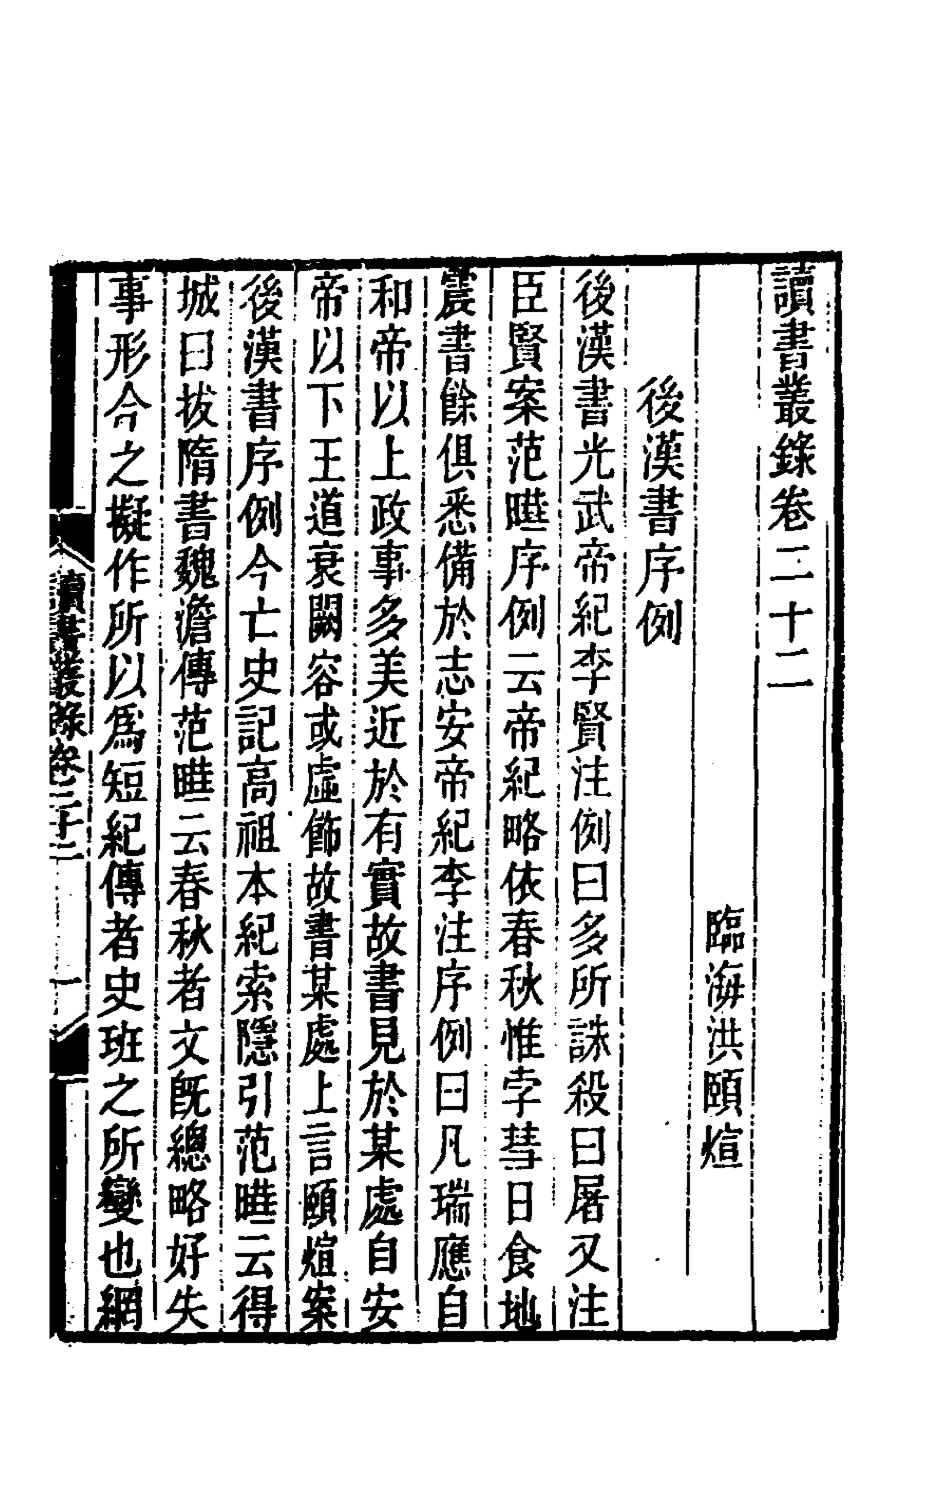 讀書叢錄卷二十二
臨海洪頤煊
後漢書序例
後漢書光武帝紀李賢注例曰多所誅殺曰屠又注
臣賢案范曄序例云帝紀略依春秋惟孛彗日食地
震書餘俱悉備於志安帝紀李注序例曰凡瑞應自
和帝以上政事多美近於有實故書見於某處自安
帝以下王道衰闕容或虛飾故書某處上言頤煊案
後漢書序例今亡史記高祖本紀索隱引范曄云得
城曰拔隋書魏澹傳范曄云春秋者文旣總略好失
事形今之擬作所以爲短紀傳者史班之所變也網
讀書叢錄卷二十二
一